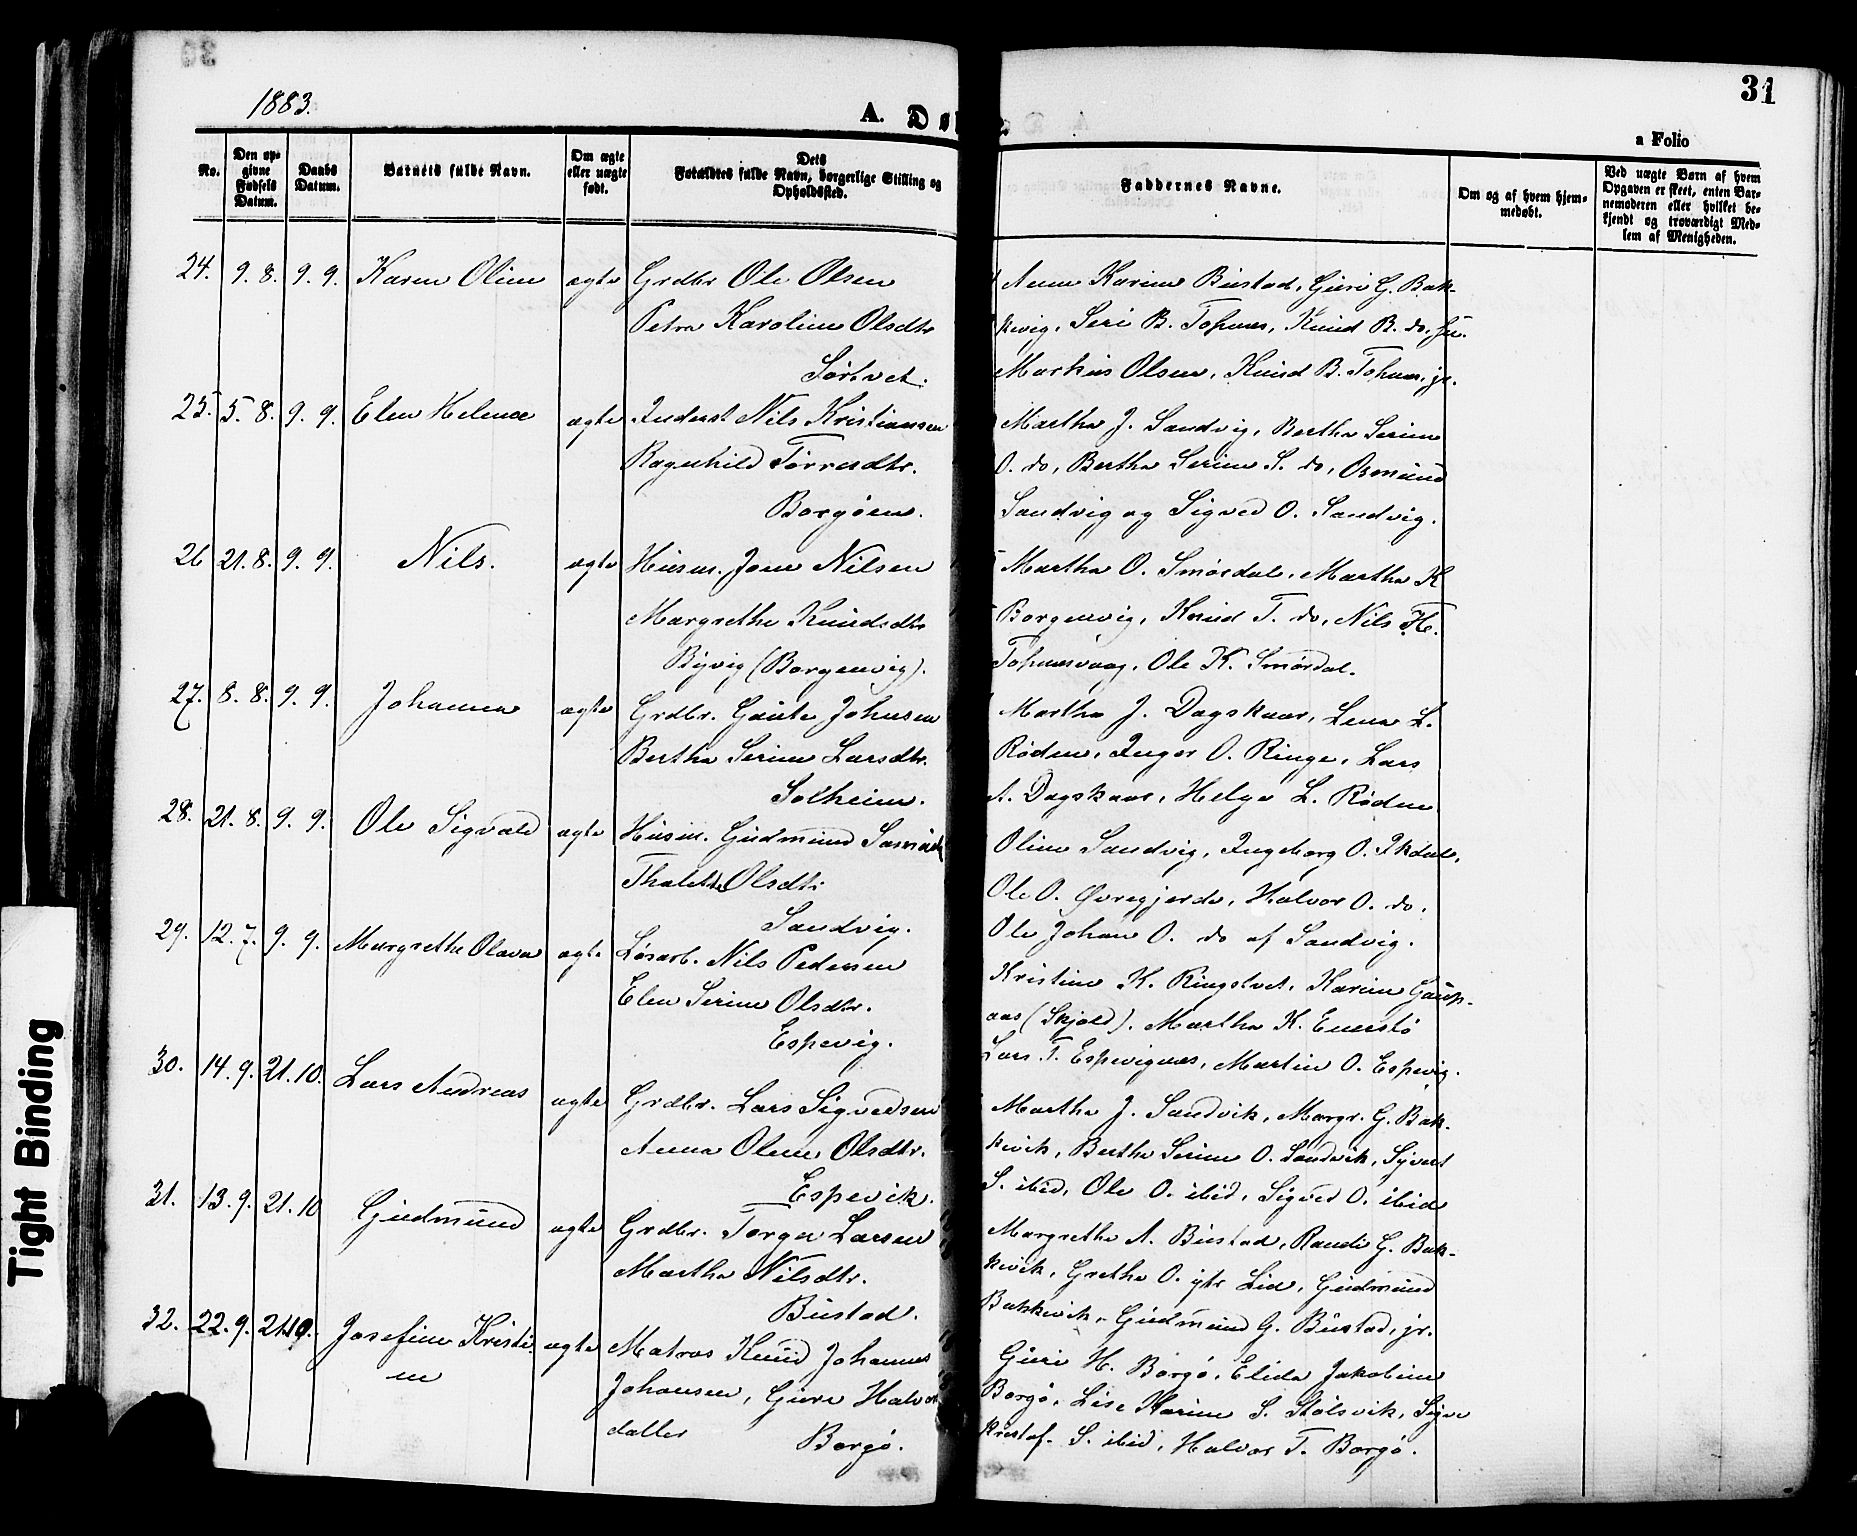 1883.
A. Dø
31
a Folio
No.
Den op-
givne
Fødsels
Datum.
Daabs
Datum.
Barnets fulde Navn.
Om ægte
eller uægte
født.
Dets
Forældres fulde Navn, borgerlige Stilling og
Opholdssted.
Faddernes Navne.
Om og af hvem hjem-
medøbt.
Ved uægte Børn af hvem
Opgaven er skeet, enten Bar-
nemoderen eller hvilket be-
kjendt og troværdigt Med-
lem af Menigheden.
24. 9. 8. 9. 9. Karen Oline ægte Grdbr Ole Olsen
Petra Karoline Olsdtr
Sørtvet.
Anne Karine Bustad, Guri G. Bak-
kevig, Seri B. Tofunes, Knud B. do, su.
Markus Olsen, Knud B. Tofunes, jr.
25. 5. 8. 9. 9. Elen Helene ægte Inderst Nils Kristiansen
Ragnhild Torresdtr.
Borgøen.
Martha J. Sandvig, Bertha Serine
O. do, Bertha Serine S. do, Osmund
Sandvig og Sigved O. Sandvig.
26 21. 8. 9. 9. Nils. ægte Husm. Jone Nilsen
Margrethe Knudsdtr
Byvig (Borgenvig).
Martha O. Smørdal, Martha K
Borgenvig, Knud T. do, Nils H.
Tofunesvaag, Ole K. Smørdal.
27. 8. 8. 9. 9. Johanna ægte Grdbr. Gaute Johnsen
Bertha Serine Larsdtr.
Solheim.
Martha J. Dagskaar, Lena L.
Røden, Inger O. Ringe, Lars
A. Dagskaar, Helge L. Røden
28. 21. 8. 9. 9. Ole Sigvald ægte Husm. Gudmund
Thalette Olsdtr
Sandvig.
Oline Sandvig, Ingeborg O. Ikdal,
Ole O. Øvregjerde, Halvor O. do,
Ole Johan O. do af Sandvig.
29. 12. 7. 9. 9. Margrethe Olava ægte Løsarb. Nils Pedersen
Elen Serine Olsdtr.
Espevig.
Kristine K. Ringstvet, Karine Gaup-
aas (Skjold), Martha K. Enerstø
Lars T. Espevignes, Martin O. Espevig.
30. 14. 9. 21. 10. Lars Andreas ægte Grdbr. Lars Sigvedsen
Anna Oline Olsdtr.
Espevik.
Martha J. Sandvik, Margr. G. Bak-
kevik, Bertha Serine O. Sandvik, Syvert
S. ibid, Ole O. ibid, Sigved O. ibid
31. 13. 9. 21. 10 Gudmund ægte Grdbr. Torger Larsen
Martha Nilsdtr.
Bustad.
Margrethe A. Bustad, Randi G. Bak-
kevik, Grethe O. ytr Lid, Gudmund
Bakkevik, Gudmund G. Bustad, jr.
32. 22. 9. 21. 10. Josefine Kristi-
ne ægte Matros Knud Johannes
Johansen, Guri Halvors
datter Borgø.
Guri H. Borgø, Elida Jakobine
Borgø, Lise Karine S. Stølsvik, Sigve
Kristof. S. ibid, Halvor T. Borgø.
Tight Binding